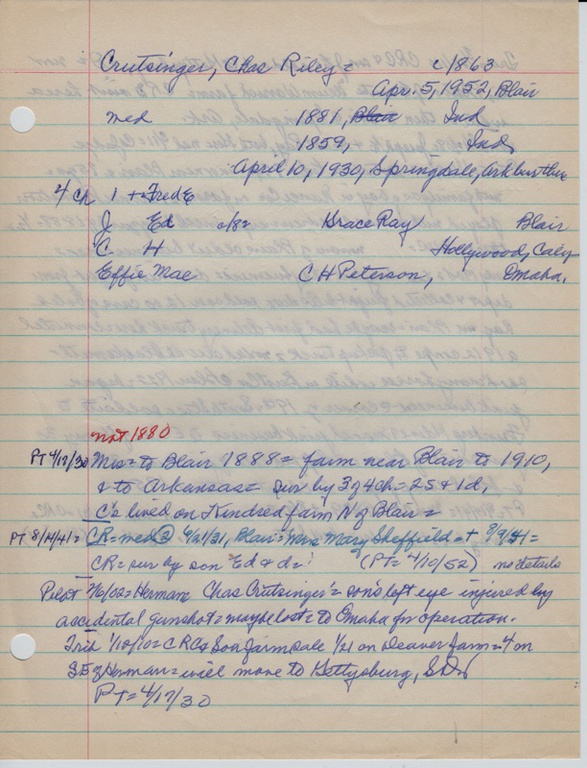 Crutsinger, Chas Riley = c/1863
Apr. 5, 1952, Blair
med 1881, Blair Ind
1859, Ind,
April 10, 1930, Springdale, Ark bur there
4 ch 1 + = Fred E
J. Ed c/8= Grace Ray Blair
C. H Hollywood, Caly
Effie Mae C H Peterson, Omaha,
not 1880
PT 4/17/30 Miss = to Blair 1888 = farm near Blair to 1910,
& to Arkansas = sur by 3 of 4 ch = 2S & 1d,
C's lived on Kindred farm N of Blair =
PT 8/14/41 = CR = med @ 4/21/31, Blair = Mrs Mary Sheffield = + 8/9/41 =
CR = sur by son Ed & d = (PT = 4/10/52) no details
Pilot 7/6/02 = Herman Chas Crutsinger's = son's left eye injured by
accidental gunshot = maybe lost = to Omaha for operation.
Trib 1/10/10 = CRC & Son farm sale 1/21 on Deaver farm = 4 on
S.E of Herman = will move to Gettysburg, S.D.
PT = 4/17/30